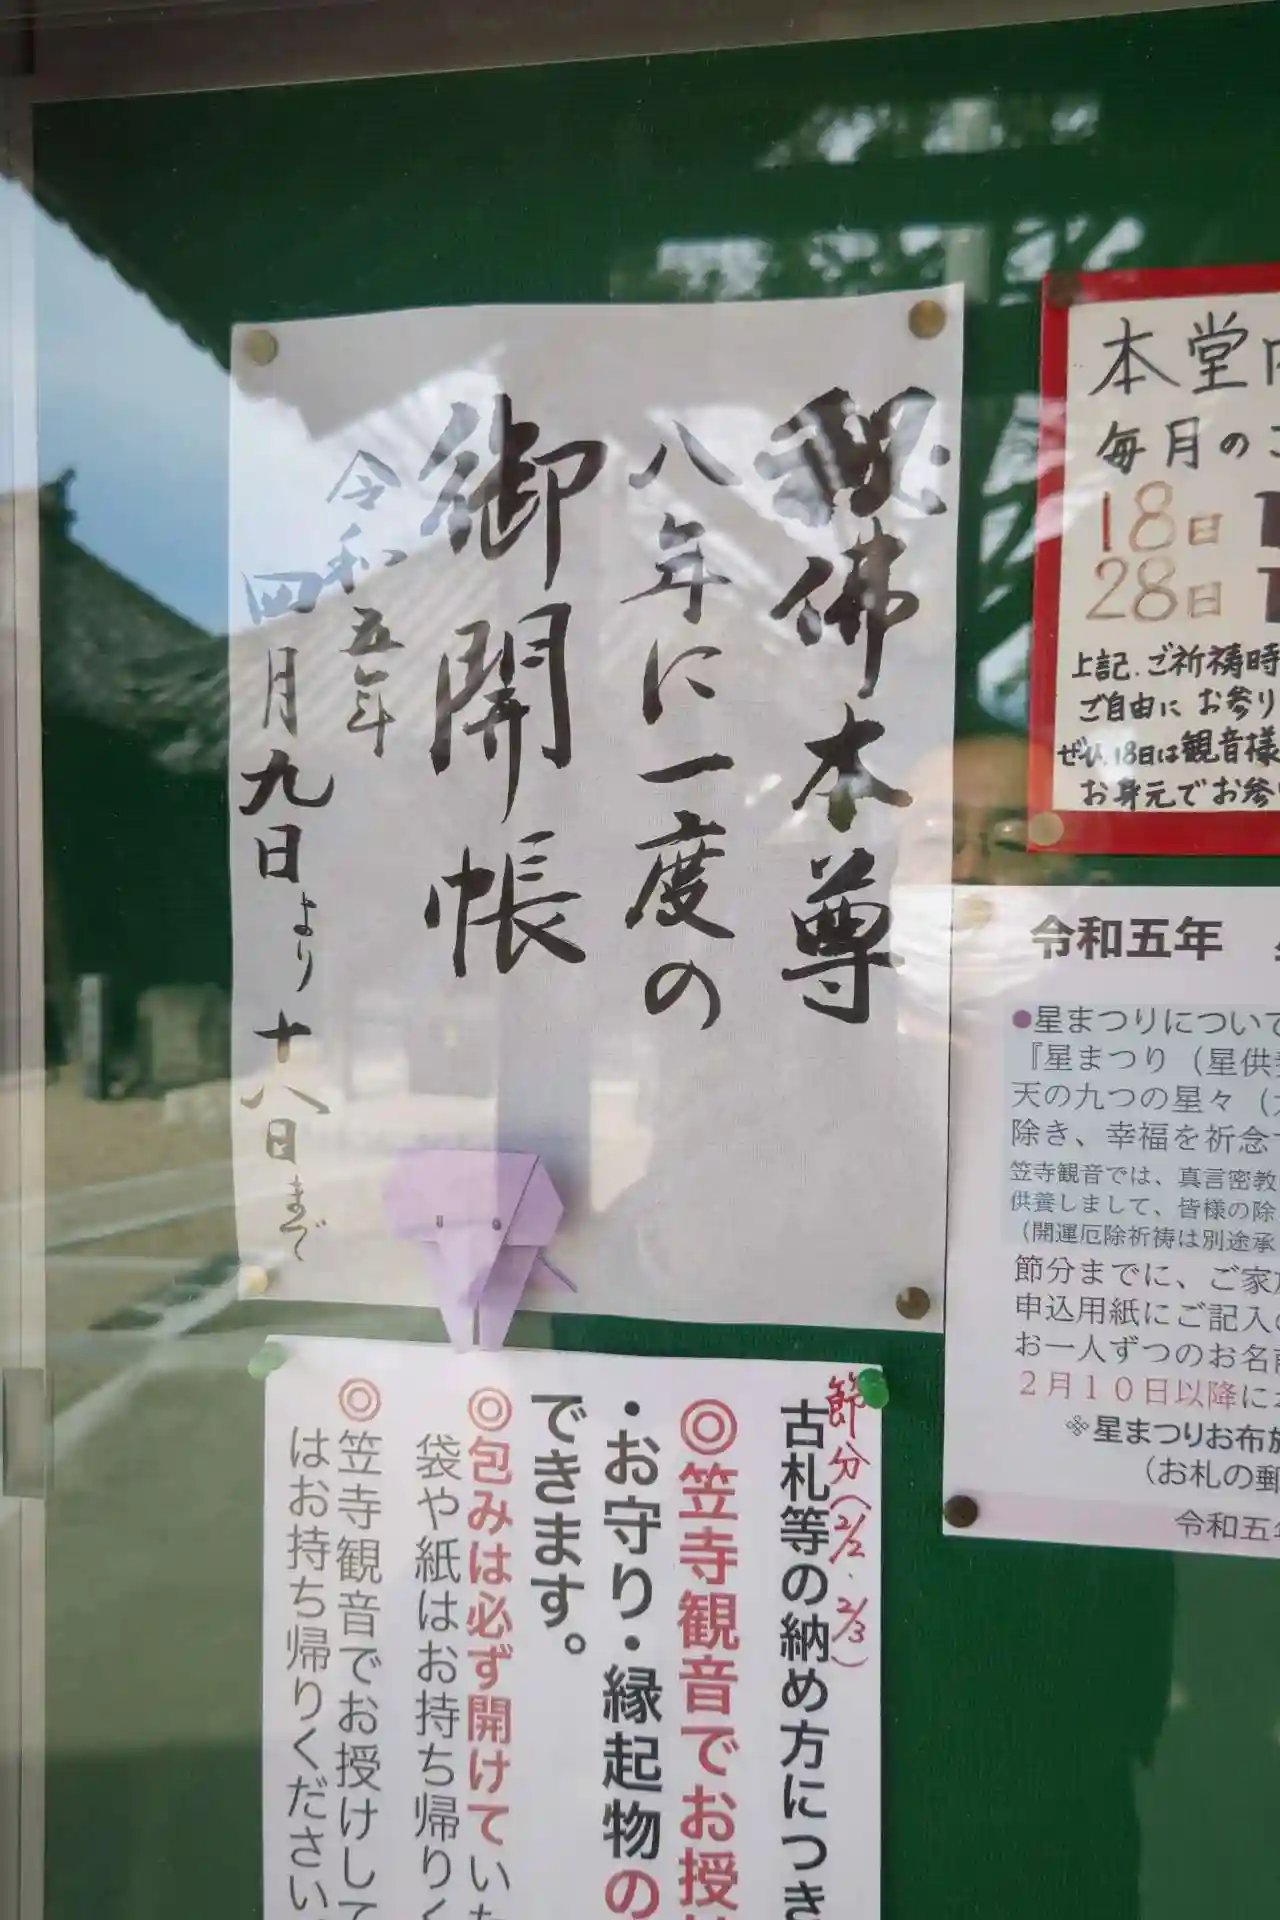 秘佛本尊
八年に一度の
御開帳
令和五年
四月九日より十八日まで
本堂内
毎月の
18日
28日
上記、ご祈祷時
ご自由に お参り
ぜひ、18日は観音様
お身元でお参
令和五年
●星まつりについて
『星まつり（星供養
天の九つの星々（
除き、幸福を祈念
笠寺観音では、真言密教
供養しまして、皆様の除
（開運厄除祈祷は別途承
節分までに、ご家族
申込用紙にご記入の
お一人ずつのお名前
２月１０日以降に
※星まつりお布施
（お札の郵
令和五年
節分（2/2.2/3）
古札等の納め方につき
◎笠寺観音でお授け
・お守り・縁起物の
できます。
◎包みは必ず開けていた
袋や紙はお持ち帰りく
◎笠寺観音でお授けして
はお持ち帰りください。